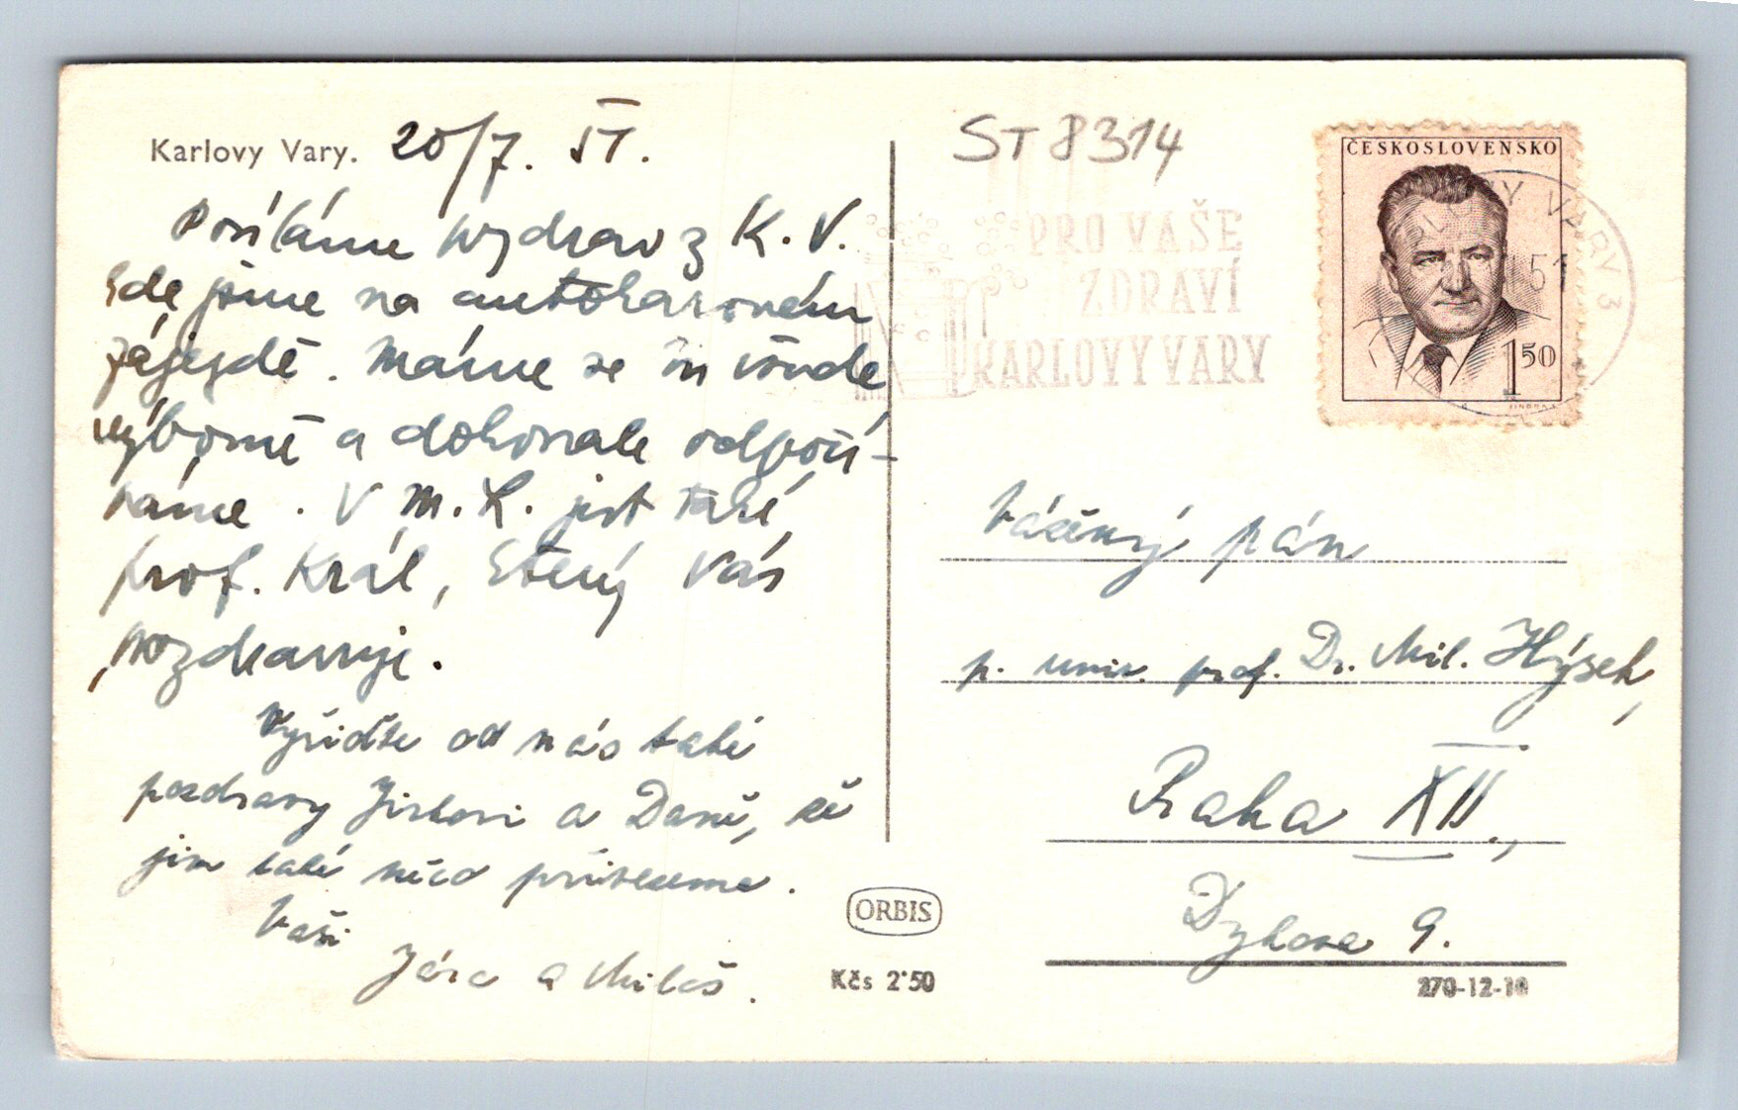 Karlovy Vary. 20/7. 51.
Posíláme pozdrav z K. V.
kde jsme na autokarovém
zájezdě. Máme se
výborně a dokonale odpočí-
váme. V M. L. jest také
prof. Král, který Vás
pozdravuje.
Vyřiďte od nás také
pozdravy Jirkovi a Daně, že
jim také něco přivezeme.
Vaši
Jára a Miloš.
ST 8314
PRO VAŠE
ZDRAVÍ
KARLOVY VARY
ČESKOSLOVENSKO
1 50
KARLOVY VARY 3
51
Vážený pán
p. univ. prof. Dr. Mil. Hýsek,
Praha XII.,
Dykova 9.
ORBIS
Kčs 2·50